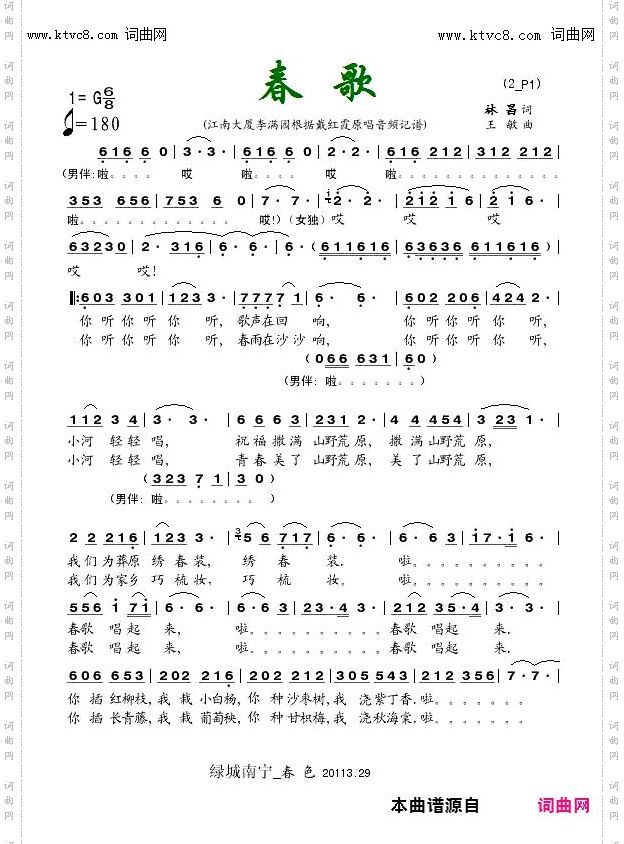 www.ktvc8.com 词曲网
www.ktvc8.com 词曲网
春 歌
(2_P1)
1=G 6/8
=180
(江南大厦李满园根据戴红霞原唱音频记谱)
林 昌 词
王 敏 曲
616 6 0 | 3· 3· | 616 6 0 | 2· 2· | 616 212 | 312 212 |
(男伴:啦。。。。 哎 啦。。。。 哎 啦。。。。。。。。。。。
353 656 | 753 6 0 | 7· 7· | 2· 2· | 2121 6 | 2 1 6 |
啦。。。。。。。。。。 哎!)(女独)哎 哎 哎
63230 | 2· 316 | 6· 6· | 6· (611616 | 63636 611616) |
哎 哎!
603 301 | 123 3· | 7777 1 | 6· 6· | 602 206 | 424 2· |
你 听你 听你 听, 歌声在回 响, 你 听你 听你 听,
你 听你 听你 听, 春雨在沙 沙响, 你 听你 听你 听,
(066 631 | 60)
(男伴:啦。。。。。。。)
112 3 4 | 3· 3· | 6 66 3 | 231 2· | 4 4 454 | 3 23 1· |
小河 轻轻 唱, 祝 福 撒 满 山野荒 原, 撒 满山野荒 原,
小河 轻轻 唱, 青 春 美 了 山野荒 原, 美 了山野荒 原,
(323 7 1 | 3 0)
(男伴:啦。。。。。。。。)
2 2 216 | 3· 3· | 5 6 717 | 6· 6· | 6· 63 | 17·1 6· |
我 们 为莽原 绣 春 装, 绣 春 装. 啦。。。。。。。。
我 们 为家乡 巧 梳 妆, 巧 梳 妆。 啦。。。。。。。。
556 1 71 | 6· 6· | 3 3 3 | 23·4 3· | 212 35·4 | 3· 3· |
春歌 唱起 来, 啦。。。。。。。。。 春歌 唱起 来.
春歌 唱起 来, 啦。。。。。。。。。 春歌 唱起 来.
606 653 | 202 216 | 202 212 | 305 543 | 212 356 | 7· 7· |
你 插 红柳枝,我 栽 小白杨,你 种 沙枣树,我 浇紫丁香.啦。。。。。。。
你 插 长青藤,我 栽 葡萄秧,你 种 甘枳梅,我 浇秋海棠.啦。。。。。。。
绿城南宁_春 色 20113.29
本曲谱源自 词曲网